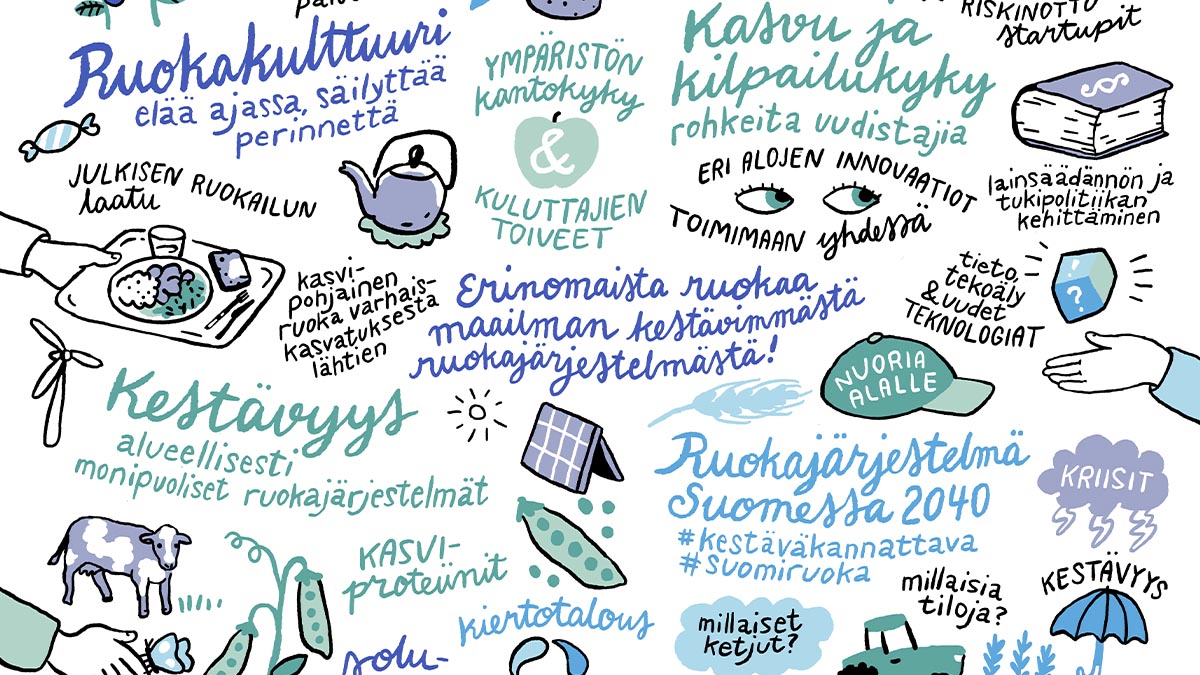 Ruokakulttuuri
elää ajassa, säilyttää
perinnettä
YMPÄRISTÖN
kantokyky
&
KULUTTAJIEN
TOIVEET
Kasvu ja
kilpailukyky
rohkeita uudistajia
RISKINOTTO
startupit
§
lainsäädännön ja
tukipolitiikan
kehittäminen
ERI ALOJEN INNOVAATIOT
TOIMIMAAN yhdessä
JULKISEN RUOKAILUN
laatu
kasvi-
pohjainen
ruoka varhais-
kasvatuksesta
lähtien
Erinomaista ruokaa
maailman kestävimmästä
ruokajärjestelmästä!
tieto,
tekoäly
& uudet
TEKNOLOGIAT
!
?
NUORIA
ALALLE
Kestävyys
alueellisesti
monipuoliset ruokajärjestelmät
Ruokajärjestelmä
Suomessa 2040
#kestäväkannattava
#Suomiruoka
KRIISIT
KESTÄVYYS
KASVI-
proteiinit
kiertotalous
solu-
millaiset
ketjut?
millaisia
tiloja?